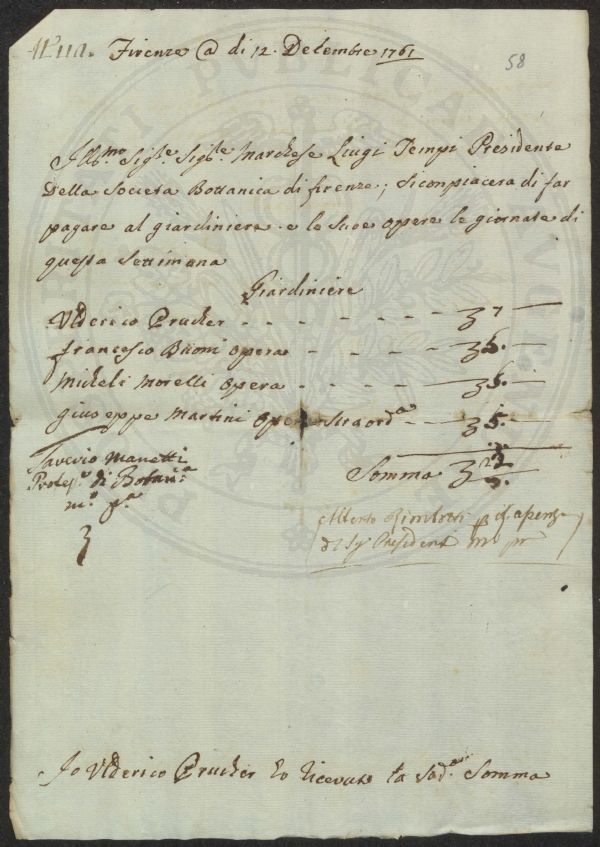 Firenze @ di 12. Decembre 1761
58
Ill.mo Sig.re Sig.re Marchese Luigi Tempi Presidente
Della Societa Bottanica di firenze; Si conpiacera di far
pagare al giardiniere e le Sue opere le giornate di
questa Settimana
Giardiniere
Vlderico Prucker - - - - - - 7 -
francesco Buoni opera - - - - 5. -
Micheli Morelli opera - - - - 5. -
giuseppe Martini Opera Straord.a - - 5. -
Saverio Manetti
Profes.e di Botan.ca
m.o p.a
Somma 22
Alberto Rimbotti
Presidente
Io Vlderico Prucker ho ricevuto la Sad.a Somma